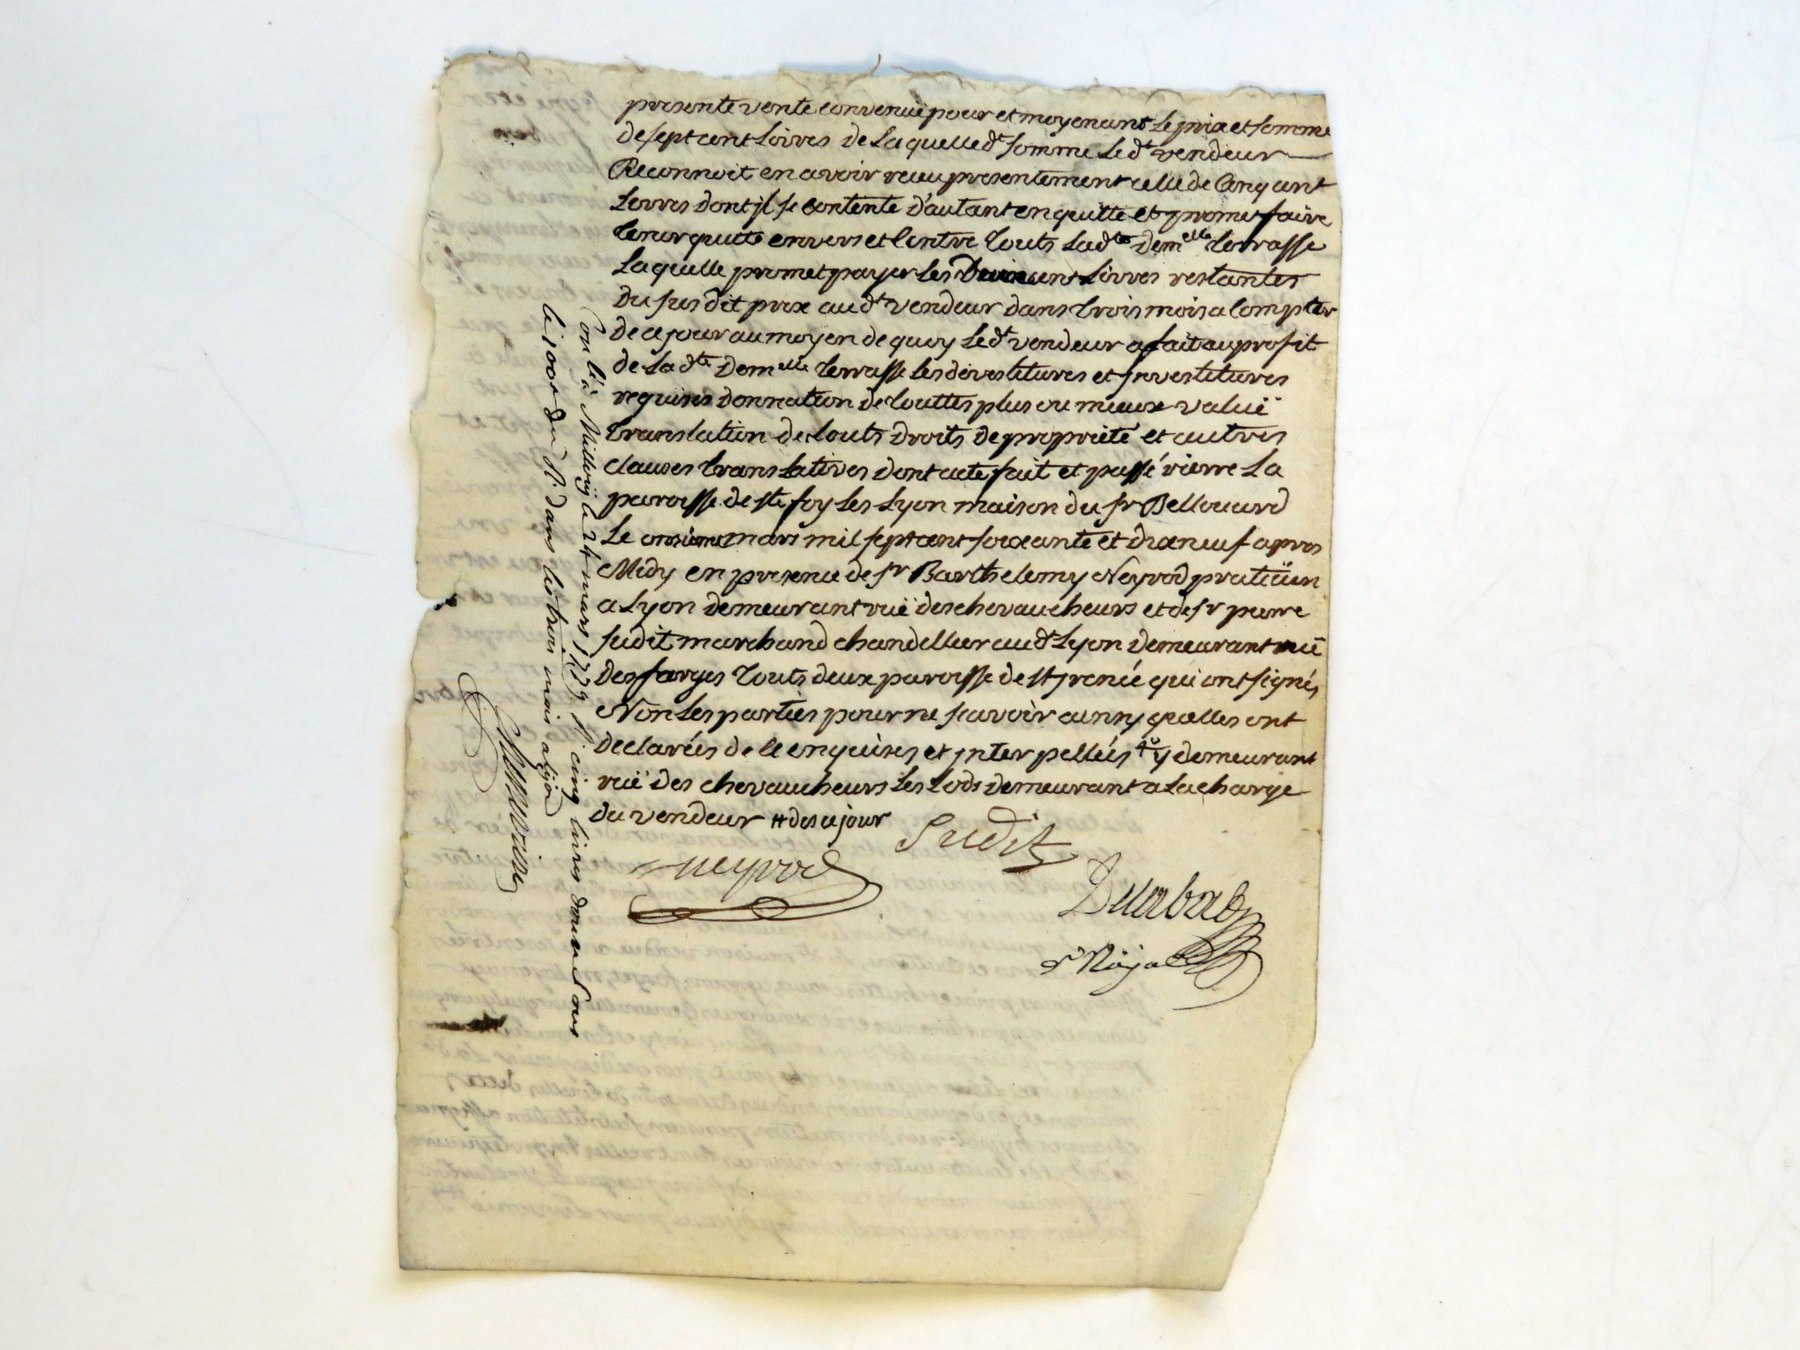 presente vente convenuë pour et moyenant le prix et somme
de sept cent Livres de Laquelle dt somme Le dt vendeur
Reconnoit en avoir receu presentement celle de Cinq cent
Livres dont jl se contente d'autant en quitte et promet faire
tenir quitte envers et Contre touts Ladte Demelle terrasse
Laquelle promet payer Les Deux cent Livres restantes
Du susdit prix audt vendeur dans trois mois a Compter
De ce jour au moyen de quoy Le dt vendeur a fait au profit
de La dte Demelle terrasse Les devestitures et jnvestitures
requises donnation de touttes plus ou mieux valuë
translation de touts droits de proprieté et autres
Clauses translatives dont acte fait et passé rierre La
paroisse de ste foy Les Lyon maison du sr Bellouard
Le onsieme mars mil sept cent soixante et dixneuf apres
Midy en presence de sr Barthelemy Neyrod praticien
a Lyon demeurant ruë des chevaucheurs et de sr pierre
Judit marchand chandellier audt Lyon demeurant ruë
des farges touts deux paroisse de st jrenée qui ont signés
Non Les parties pour ne sçavoir ainsy qu'elles ont
declarées de ce enquises et jnterpellées y demeurant
ruë des chevaucheurs Les Lods demeurant a La charge
du vendeur # des ce jour
Judit
neyrod
Duabad
nre Royal
Conlé a Millery le 24 mars 1779 R. cinq livres douze sous
le 100e du R. dans les trois mois a lyon